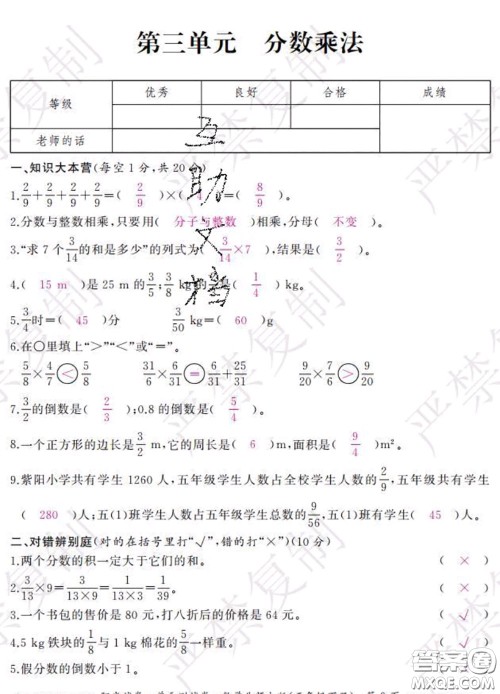 第三单元 分数乘法
等级 优秀 良好 合格 成绩
老师的话
一、知识大本营(每空1分,共20分)
1.2/9+2/9+2/9+2/9=( 2/9 )×( 4 )=( 8/9 )
2.分数与整数相乘,只要用( 分子与整数 )相乘,分母( 不变 )。
3.“求7个3/14的和是多少”的列式为( 3/14×7 ),结果是( 3/2 )。
4.( 15 m )是25 m的3/5;3/8 kg的是( 1/4 )kg。
5.3/4时=( 45 )分 3/50 kg=( 60 )g
6.在○里填上“>”“<”或“=”。
5/8×4/7<5/8 31/6×6/31=6/31+25/31 9/20×7/6>9/20
7.3/2的倒数是( 2/3 );0.8的倒数是( 5/4 )。
8.一个正方形的边长是3/2 m,它的周长是( 6 )m,面积是( 9/4 )m²。
9.紫阳小学共有学生1260人,五年级学生人数占全校学生人数的2/9,五年级共有学生
( 280 )人;五(1)班学生人数占五年级学生总数的9/56,五(1)班有学生( 45 )人。
二、对错辨别庭(对的在括号里打“√”,错的打“×”)(10分)
1.两个分数的积一定大于它们的和。 ( × )
2.3/13×9=3/13×3=1/39。 ( × )
3.一个书包的售价是80元,打八折后的价格是64元。 ( √ )
4.5 kg铁块的1/8与1 kg棉花的5/8一样重。 ( √ )
5.假分数的倒数小于1。
互助文档
严禁复制
严禁复制
严禁复制
答案圈
MXQE.COM